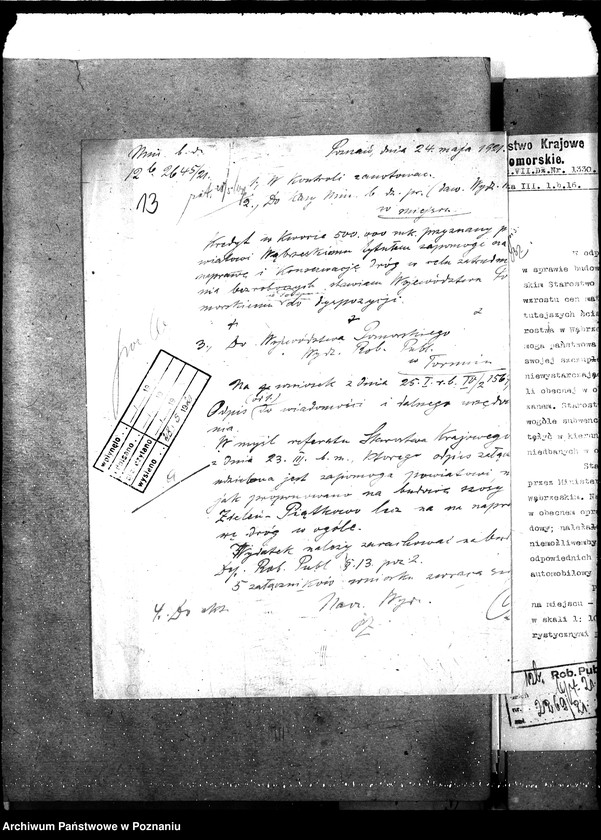 Min. b. dz.
12 b 2645/21.
13
Poznań, dnia 24. maja 1921.
1, W Kontroli zanotować.
2., Do Kasy Min. b. dz. pr. (daw. Wydz.
w miejscu
Kredyt w kwocie 500.000 mk. przyznany
wiatowi Wąbrzeskiemu tytułem zapomogi na
naprawę i konserwację dróg w celu zatrudnie
nia bezrobotnych stawiam Województwu Po
morskiemu do dyspozycji.
3., Do Województwa Pomorskiego
Wydz. Rob. Publ.
w Toruniu
Na wniosek z dnia 25. I. r. b.
Odpis do wiadomości i dalszego urzędowa
nia.
W myśl referatu Starostwa Krajowego
z dnia 23. III. b. r., którego odpis załącz
udzielona jest zapomoga powiatowi
jak proponowano na budowę szosy
Zieleń - Piątkowo lecz na na napra
wę dróg w ogóle.
Wydatek należy zarachować na
Dep. Rob. Publ. § 13. poz 2.
5 załączników wniosku zwraca
Nacz. Wyd.
4. Do akt.
wpłynęło
napisano
odczytano
wysłano
stwo Krajowe
omorskie.
VII.Dz.Nr. 1330.
III. 1.b.16.
W odp
w sprawie budow
skim Starostwo
wzrostu cen mat
tutejszych dzia
rostwa w Wąbrze
moga państwowa
swojej szczupło
niewystarczając
li obecnej w o
zanem. Starost
wogóle subwenc
tężył w kierun
niedbanych w o
Sta
przez Minister
Wąbrzeźka. Na
w obecnem opra
dowy; należało
niemożliwemby
odpowiednich
automobilowy
na miejscu -
w skali 1: 10
rystycznymi p
Rob. Pub
nr.
Archiwum Państwowe w Poznaniu